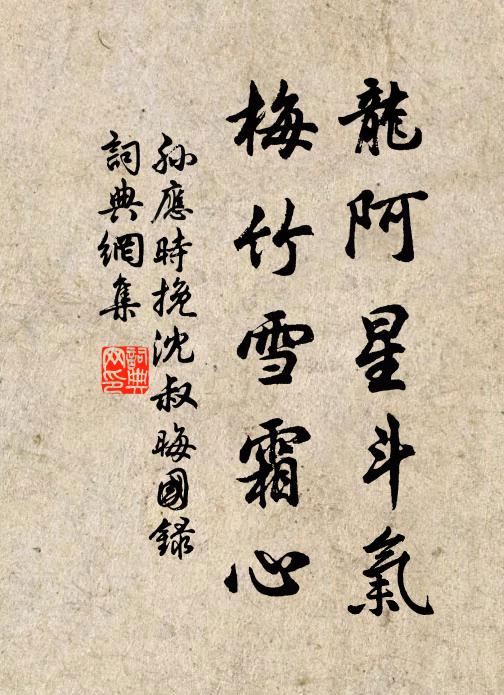 龍阿星斗氣
梅竹雪霜心
孫應時挽沈叔晦國錄
詞典網集
詞典网印